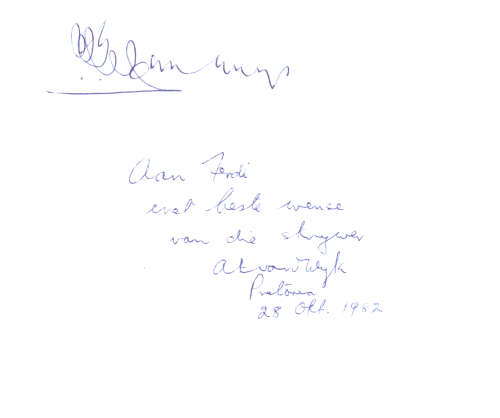 Aan Ferdi
met beste wense
van die skrywer
At van Wyk
Pretoria
28 Okt. 1982